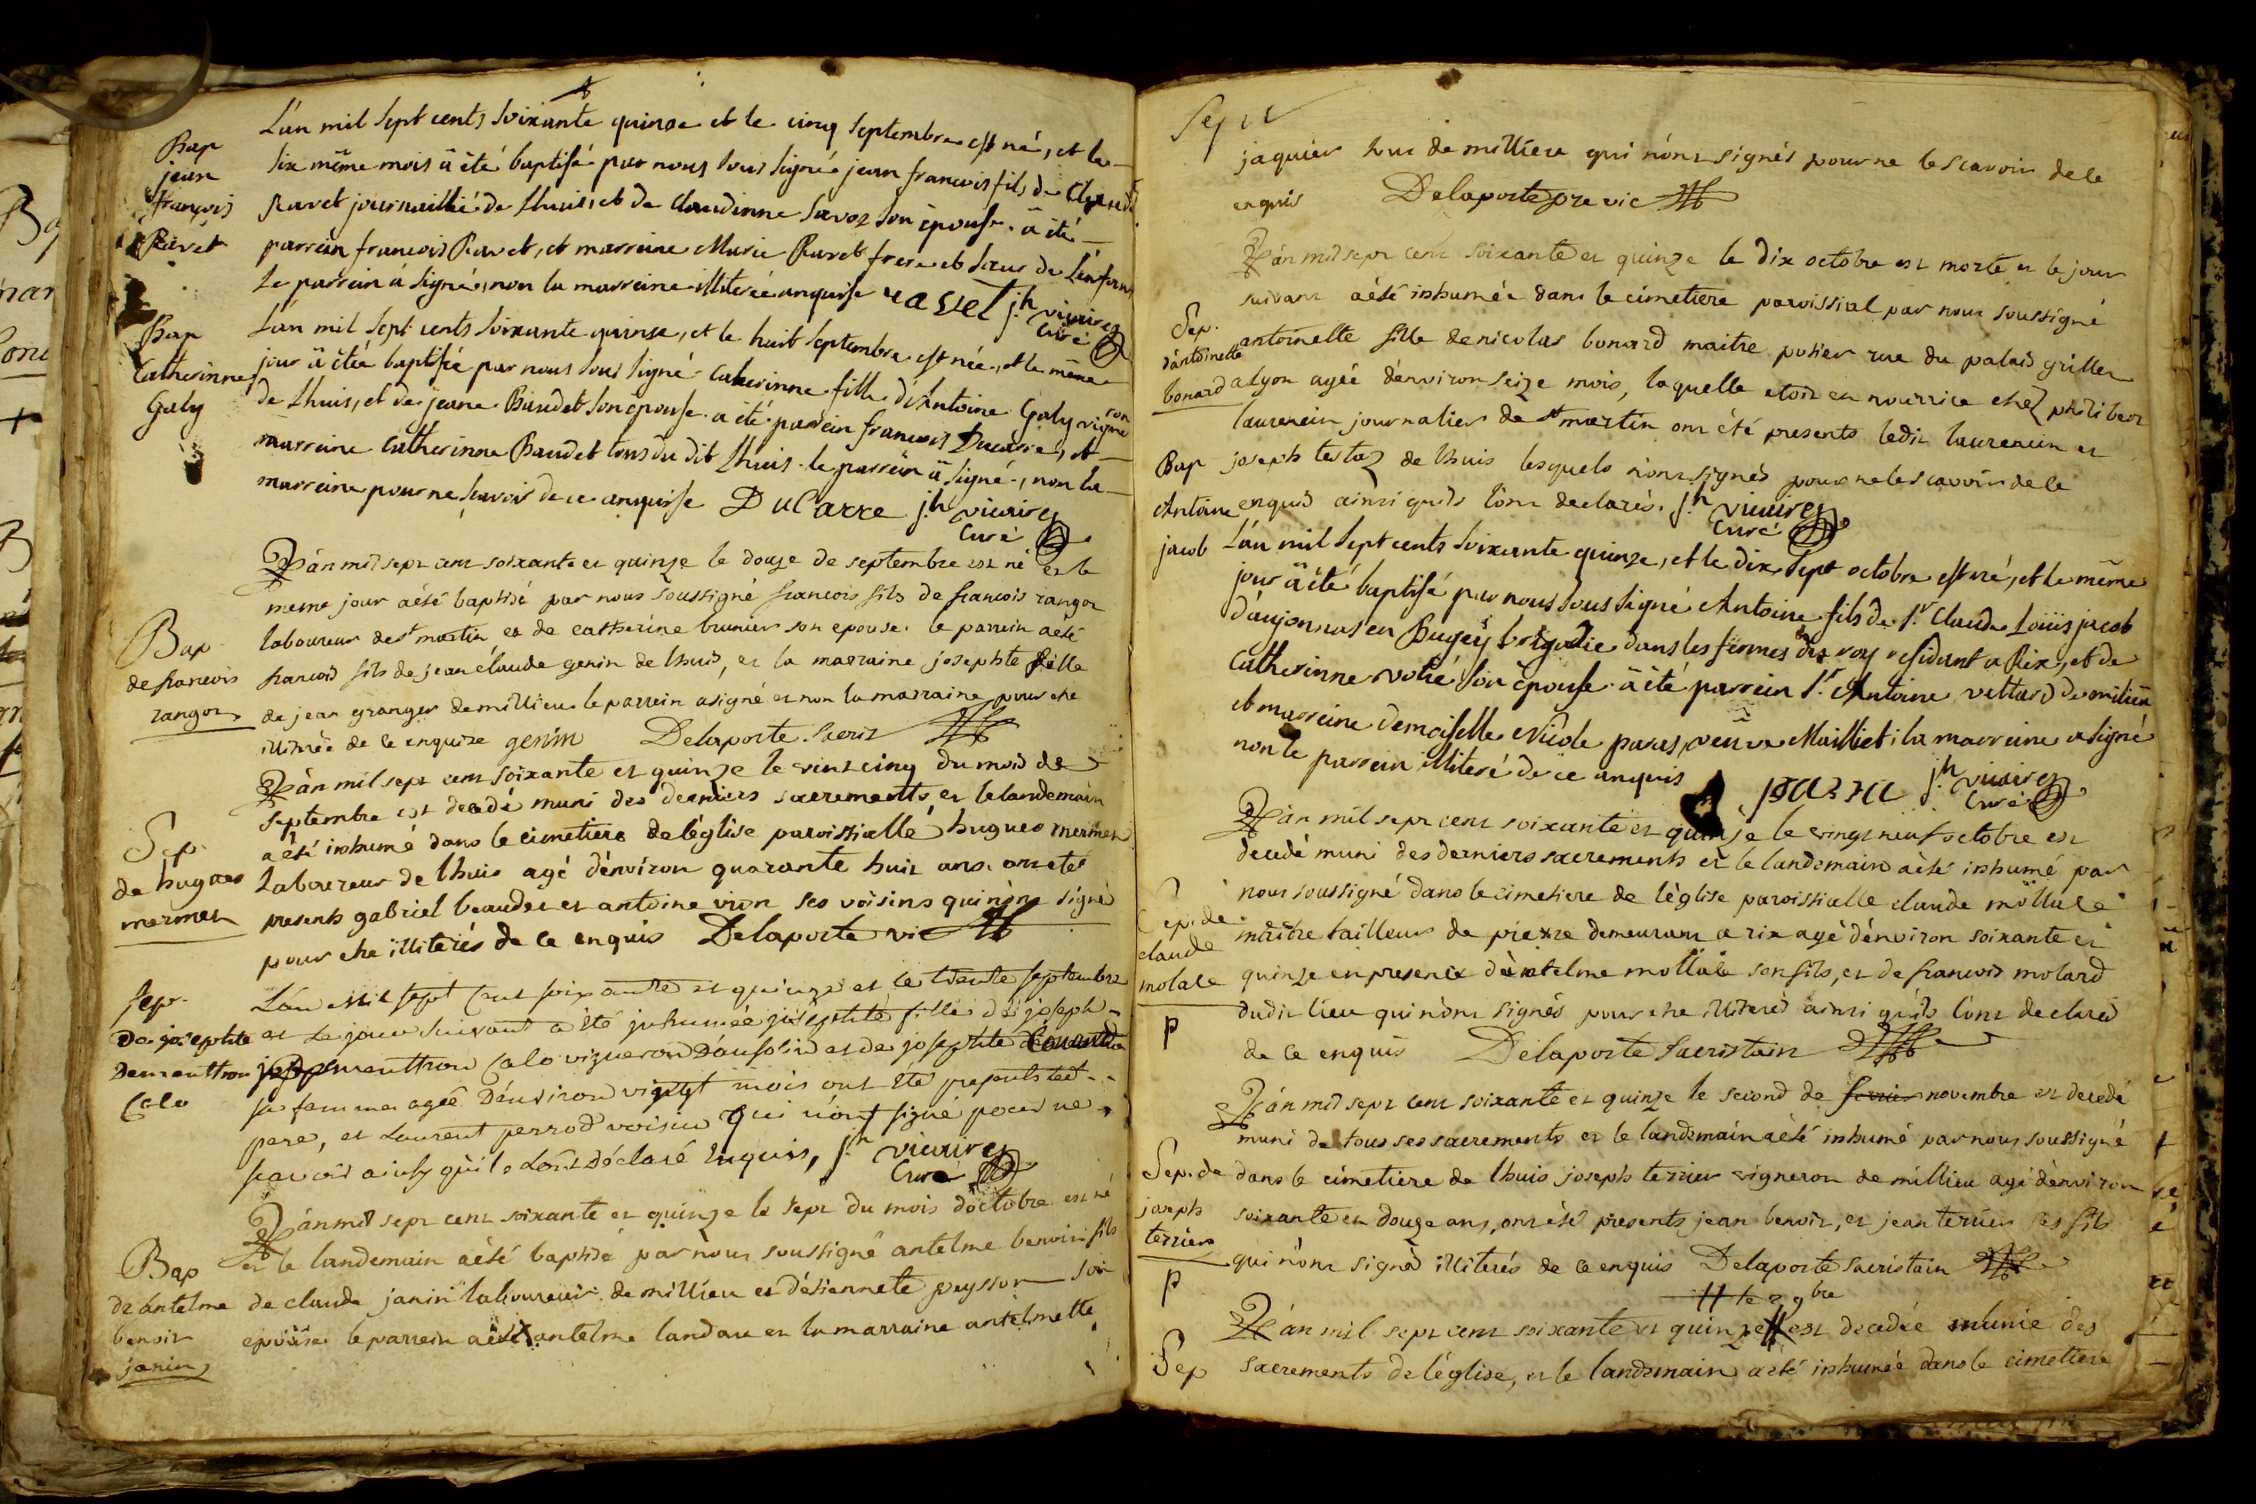 Bap
jean
françois
Ravet
L'an mil sept cents soixante quinze et le cinq septembre est né, et le
six même mois ä été baptisé par nous sous signé jean francois fils de Claude
Ravet journaillié de Lhuis, et de Claudinne Savoz son épouse. ä été
parrein francois Ravet, et marreine Marie Ravet frere et sœur de L'enfant
Le parrein á signé, non la marreine illiterée anquise ravet jh vicaire
Curé
Bap
Catherinne
Galy
L'an mil sept cents soixante quinze, et le huit septembre est née, et le même
jour ä étée baptisée par nous sous signé Catherinne fille d'Antoine Galy vigneron
de Lhuis, et de jeane Baudet son epouse. a été parrein francois Ducarre, et
marreine Catherinne Baudet tous du dit Lhuis. le parrein ä signé, non la
marreine pour ne sçavoir de ce anquise DuCarre jh vicaire
Curé
L'án mil sept cent soixante et quinze le douze de septembre est né et le
meme jour aèté baptisé par nous soussigné francois fils de francois
Bap
de francois
laboureur de st martin et de catherine brunier son epouse. le parrein aèté
francois fils de jean claude genin de lhuis, et la marraine josephte fille
de jean granger de millieu le parrein a signé et non la marraine pour etre
illitrée de ce enquise genin Delaporte Sacrist
L'án mil sept cent soixante et quinze le vint cinq du mois de
septembre est decedé muni des derniers sacrements, et le landemain
Sep.
de hugues
mermet
aèté inhumé dans le cimetiere de lèglise paroissielle hugues mermet
Laboureur de lhuis agé dénviron quarante huit ans. ont eté
presents gabriel beaudet et antoine vion ses voisins qui nónt signé
pour etre illiterés de ce enquis Delaporte vic
sep.
De josephte
Demeuthon
Calo
L'an mil sept cent soixante et quinze et le trente septembre
et le jour suivant a èté inhumée josephte fille de joseph
meuthon Calo vigneron D'ansolin et de josephte
sa femme ageé Dénviron vigt mois ont èté presents led
pere, et Laurent perrod voisin qui n'ont signé pour ne
scavoir ainsy quils L'ont déclaré enquis, jh vicaire
Curé
L'án mil sept cent soixante et quinze le sept du mois dòctobre est né
Bap
de ántelme
benoit
janin
et le landemain aèté baptisé par nous soussigné antelme benoit fils
de claude janin laboureur de millieu et détiennete peysson son
epouse le parrein aèté antelme landau et la marraine antelmette
jaquier tous de milliere qui nónt signés pour ne le scavoir de ce
enquis Delaporte pre vic
L'án mil sept cent soixante et quinze le dix octobre est morte et le jour
suivant aèté inhumée dans le cimetiere paroissial par nous soussigné
Sep.
dántoinette
bonard
antoinette fille de nicolas bonard maitre potier rue du palais grillet
a lyon ageé dénviron seize mois, laquelle etoit en nourrice chez philibert
laurencin journalier de st martin ont été presents ledit laurencin et
joseph testaz de lhuis lesquels nónt signés pour ne le scavoir de ce
enquis ainsi quils lónt declarés. jh vicaire
Curé
Bap
Antoine
jacob
L'an mil sept cents soixante quinze, et le dix sept octobre est né, et le même
jour ä été baptisé par nous sous signé Antoine fils de Sr Claude Loüis jacob
en Bugey brigadie dans les fermes du roy residant a Rix, et de
Catherinne votié son épouse. ä été parrein Sr Antoine vettard de miliëu
et marreine demoiselle Nicole paras, veuve Malliet; la marreine a signé
non le parrein illiteré de ce anquis para jh vicaire
Curé
L'án mil sept cent soixante et quinze le vingt neuf octobre est
decedé muni des derniers sacrements et le landemain aèté inhumé par
Sep. de
claude
molare
P
nous soussigné dans le cimetiere de léglise paroissielle claude mollare
maitre tailleur de pierre demeurant a rix agé dénviron soixante et
quinze en presence dántelme mollare son fils, et de francois molard
dudit lieu qui nónt signés pour etre illiterés ainsi quils lónt declarés
de ce enquis Delaporte Sacristain
L'án mil sept cent soixante et quinze le second de novembre est decedé
muni de tous ses sacrements et le landemain aèté inhumé par nous soussigné
Sep. de
joseph
terrier
P
dans le cimetiere de lhuis joseph terrier vigneron de millieu agé dénviron
soixante et douze ans, ont èté presents jean benoit, et jean terrier ses fils
qui nónt signés illiterés de ce enquis Delaporte Sacristain
// le 9bre
L'án mil sept cent soixante et quinze // est decedée munie des
Sep
sacrements de léglise, et le landemain aeté inhumée dans le cimetiere